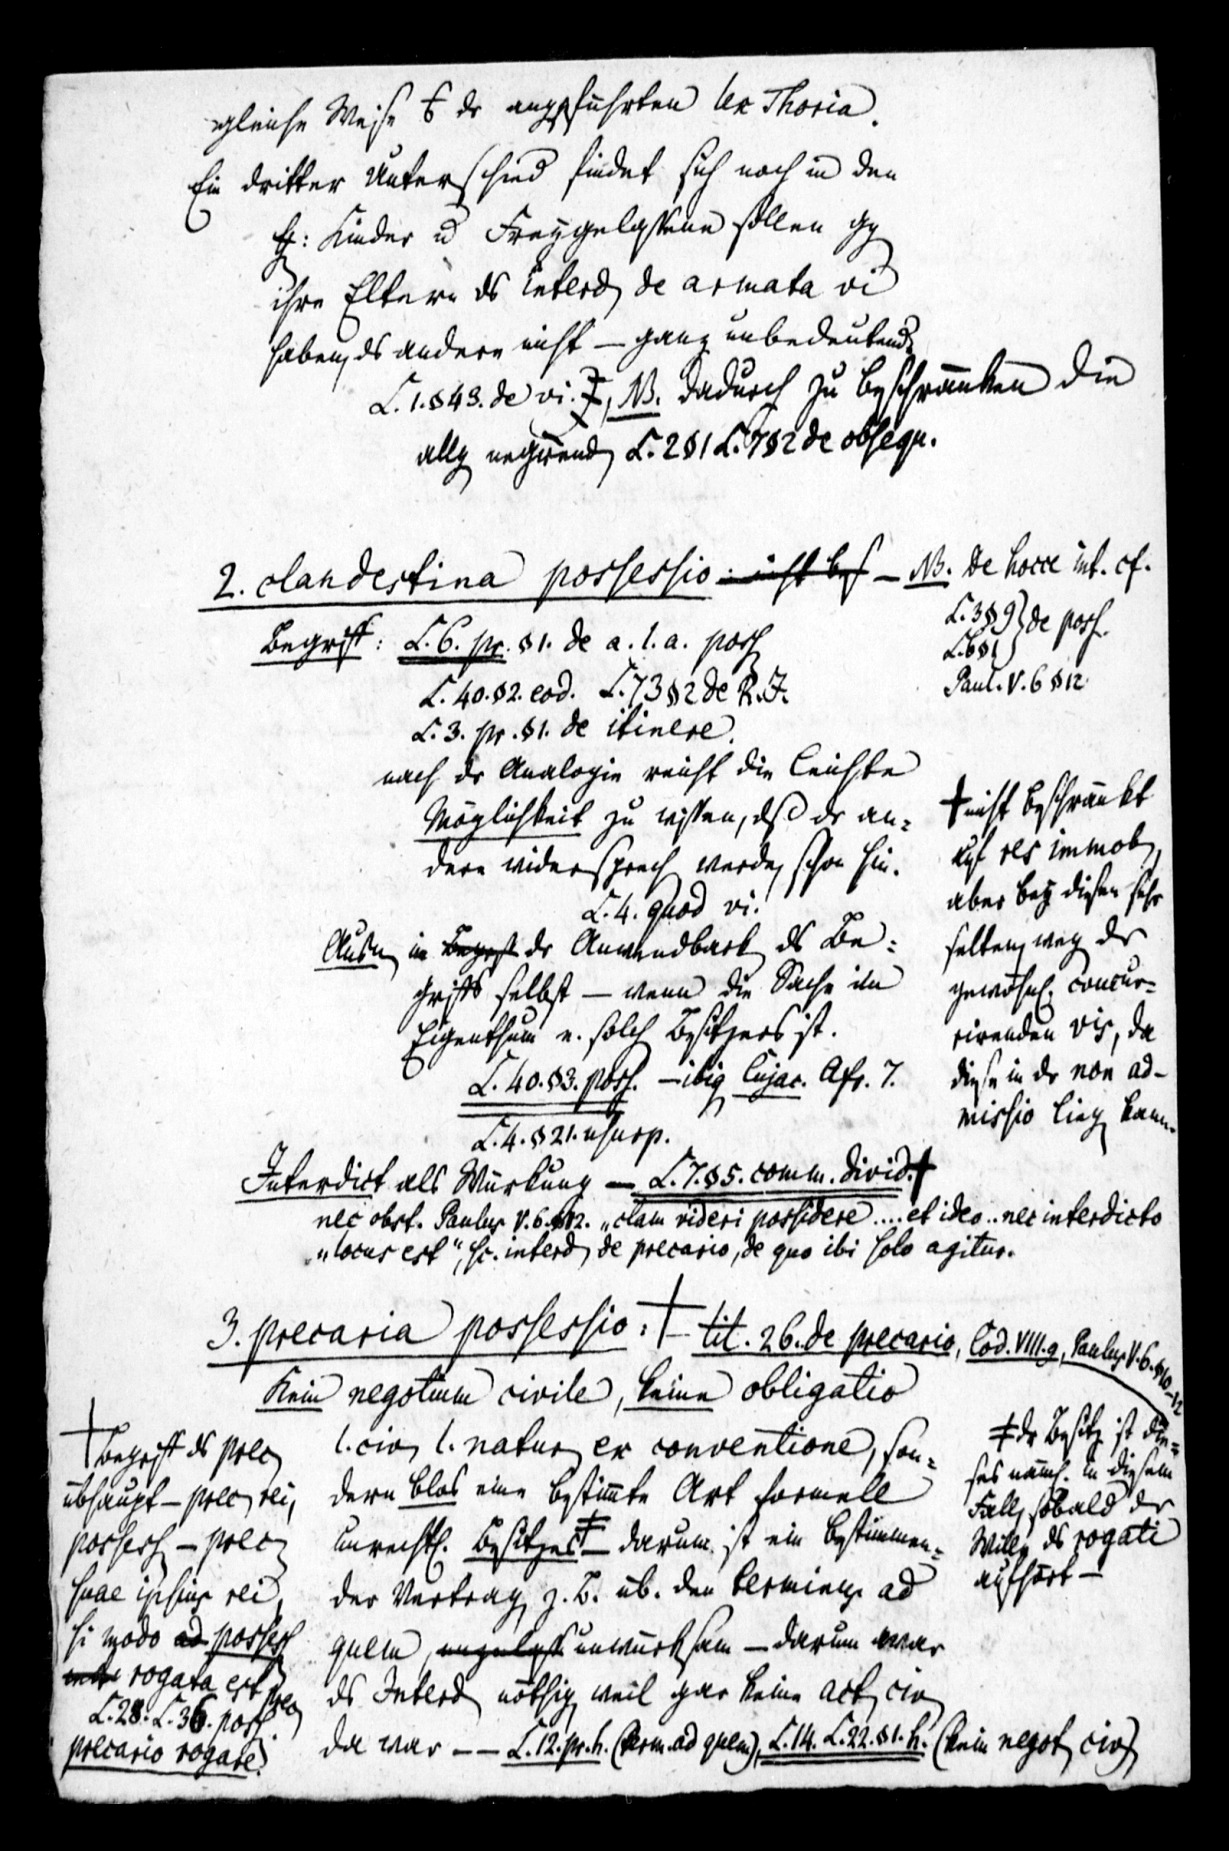 gleiche Weise in der angeführten lex Thoria.
Ein dritter Unterschied findet sich noch in den
: Kinder u Freygelassene sollen gg
ihre Eltern ds Interd de armata vi
haben, ds andere nicht — ganz unbedeutend
L. 1. §43. de vi. ‡, NB. dadurch zu beschränken die
allg negirend L. 2 §1 L. 7 §2 de obsequ.
2. clandestina possessio : nicht bes — NB. de hocce int. cf.
L. 3 § 9 } de poss.
L. 6 § 1
Paul. V. 6 § 12
Begriff: L. 6. pr. §1. de a. l. a. poss
L. 40. §2. eod. L. 73 §2 de R. J.
L. 3. pr. §1. de itinere.
nach der Analogie reicht die leichte
Möglichkeit zu wissen, dß der an=
dere widersprech werde, schon hin.
L. 4. quod vi.
Ausn in Begriff der Anwendbark ds Be=
griffs selbst — wenn die Sache im
Eigenthum e. solch Besitzers ist.
L. 40. §3. poss. — ibiq Cujac. Afr. 7.
L. 4. §21. usurp.
Interdict als Würkung — L. 7. §5. comm. divid. †
nec obst. Paulus V. 6. §12. „clam videri possidere .... et ideo .. nec interdicto
„locus est“, sc. interd de precario, de quo ibi solo agitur.
† nicht beschränkt
auf res immob,
aber bey diesen sehr
selten, weg der
gewöhnl. concur=
rirenden vis, da
diese in der non ad-
missio lieg kann.
3. precaria possessio : † — tit. 26. de precario, Cod. VIII. 9, Paulus V. 6. §10-12
Kein negotium civile, keine obligatio
l. civ l. natur ex conventione, son=
dern blos eine bestimmte Art formell
unrechtl. Besitzes ‡ — darum ist ein bestimmen=
der Vertrag z. B. üb. den terminus ad
quem, unwürksam — darum war
ds Interd nöthig weil gar keine act civ
da war — — L. 12. pr. h. (term. ad quem), L. 14. L. 22. §1. h. (kein negot civ)
† Begriff ds prec
übhaupt — prec rei,
possess — prec
suae ipsius rei,
si modo ad possess
rogata est prec
L. 28. L. 36. poss
precario rogare.
‡ der Besitz ist die=
ses näml. in diesem
Fall, sobald der
Wille ds rogati
aufhört —